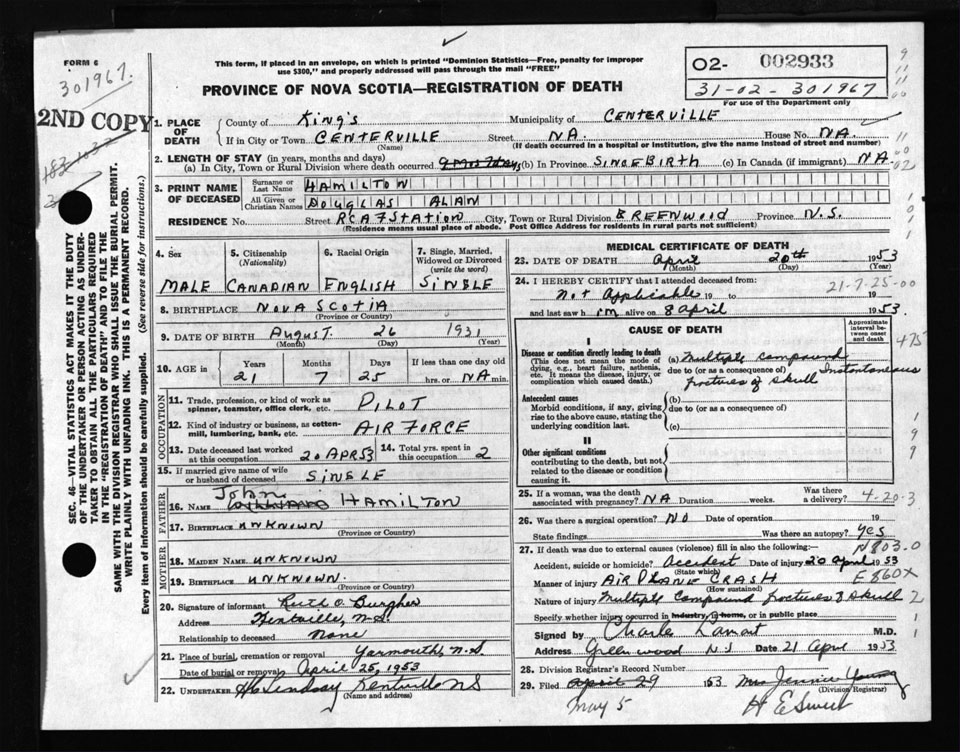 FORM 6
301967.
2ND COPY
This form, if placed in an envelope, on which is printed "Dominion Statistics—Free, penalty for improper
use $300," and properly addressed will pass through the mail "FREE"
PROVINCE OF NOVA SCOTIA—REGISTRATION OF DEATH
O2- 002933
31-02-301967
For use of the Department only
SEC. 46—VITAL STATISTICS ACT MAKES IT THE DUTY
OF THE UNDERTAKER OR PERSON ACTING AS UNDER-
TAKER TO OBTAIN ALL THE PARTICULARS REQUIRED
IN THE "REGISTRATION OF DEATH" AND TO FILE THE
SAME WITH THE DIVISION REGISTRAR WHO SHALL ISSUE THE BURIAL PERMIT.
WRITE PLAINLY WITH UNFADING INK. THIS IS A PERMANENT RECORD.
Every item of information should be carefully supplied. (See reverse side for instructions.)
1. PLACE OF DEATH
County of King's Municipality of CENTERVILLE
If in City or Town CENTERVILLE Street NA. House No. NA.
(Name) (If death occurred in a hospital or institution, give the name instead of street and number)
2. LENGTH OF STAY (in years, months and days)
(a) In City, Town or Rural Division where death occurred (b) In Province SINCE BIRTH (c) In Canada (if immigrant) NA.
3. PRINT NAME OF DECEASED
Surname or Last Name HAMILTON
All Given or Christian Names DOUGLAS ALAN
RESIDENCE No. Street RCAF STATION City, Town or Rural Division GREENWOOD Province N.S.
(Residence means usual place of abode. Post Office Address for residents in rural parts not sufficient)
4. Sex MALE
5. Citizenship (Nationality) CANADIAN
6. Racial Origin ENGLISH
7. Single, Married, Widowed or Divorced (write the word) SINGLE
8. BIRTHPLACE NOVA SCOTIA
(Province or Country)
9. DATE OF BIRTH AUGUST. 26 1931
(Month) (Day) (Year)
10. AGE IN Years 21 Months 7 Days 25 If less than one day old hrs. or NA min.
OCCUPATION
11. Trade, profession, or kind of work as spinner, teamster, office clerk, etc. PILOT
12. Kind of industry or business, as cotten-mill, lumbering, bank, etc. AIR FORCE
13. Date deceased last worked at this occupation 20 APR 53
14. Total yrs. spent in this occupation 2
15. If married give name of wife or husband of deceased SINGLE
FATHER
16. NAME John HAMILTON
17. BIRTHPLACE UNKNOWN
MOTHER
18. MAIDEN NAME UNKNOWN
19. BIRTHPLACE UNKNOWN.
(Province or Country)
20. Signature of informant Ruth O. Burgher
Address Kentville, N.S.
Relationship to deceased None
21. Place of burial, cremation or removal Yarmouth, N.S
Date of burial or removal April 25, 1953
22. UNDERTAKER Lindsay Kentville NS
(Name and address)
MEDICAL CERTIFICATE OF DEATH
23. DATE OF DEATH April 20th 1953
(Month) (Day) (Year)
24. I HEREBY CERTIFY that I attended deceased from: 21-7-25-00
Not Applicable 19 to 19
and last saw him alive on 8 April 1953.
CAUSE OF DEATH
Approximate interval between onset and death
475
I
Disease or condition directly leading to death
(This does not mean the mode of dying, e.g., heart failure, asthenia, etc. It means the disease, injury, or complication which caused death.)
(a) Multiple compound
due to (or as a consequence of) Instantaneous
fractures of skull
Antecedent causes
Morbid conditions, if any, giving rise to the above cause, stating the underlying condition last.
(b)
due to (or as a consequence of)
(c)
II
Other significant conditions
contributing to the death, but not related to the disease or condition causing it.
25. If a woman, was the death associated with pregnancy? NA Duration weeks. Was there a delivery? 4-20-3
26. Was there a surgical operation? No Date of operation 19
State findings Was there an autopsy? Yes
27. If death was due to external causes (violence) fill in also the following:— N803.0
Accident, suicide or homicide? Accident Date of injury 20 April 1953
(State which)
Manner of injury AIR PLANE CRASH E860X
(How sustained)
Nature of injury Multiple Compound fractures of skull 2
Specify whether injury occurred in industry, in home, or in public place
Signed by Charles Lamont M.D.
Address Greenwood N S Date 21 April 1953
28. Division Registrar's Record Number
29. Filed April 29 1953 Mrs Jennie Young
(Division Registrar)
May 5 H E Sweet